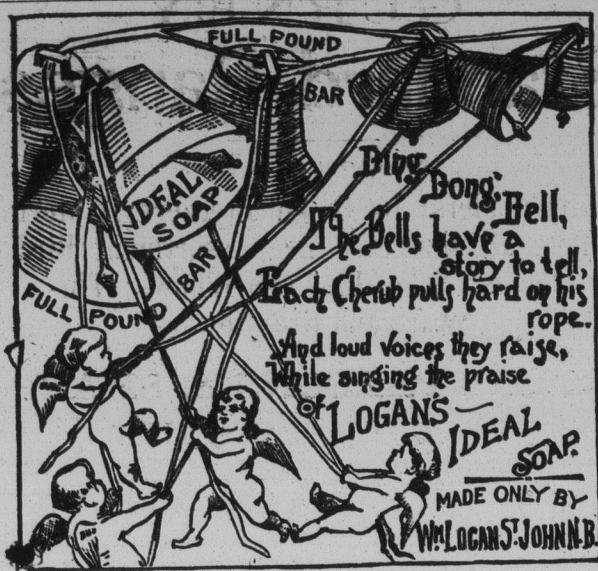 FULL POUND
BAR
IDEAL
SOAP
FULL POUND BAR
Ding Dong Bell,
The Bells have a
story to tell,
Each Cherub pulls hard on his
rope.
And loud voices they raise,
While singing the praise
of LOGAN'S
IDEAL
SOAP.
MADE ONLY BY
WM LOGAN ST. JOHN N.B.